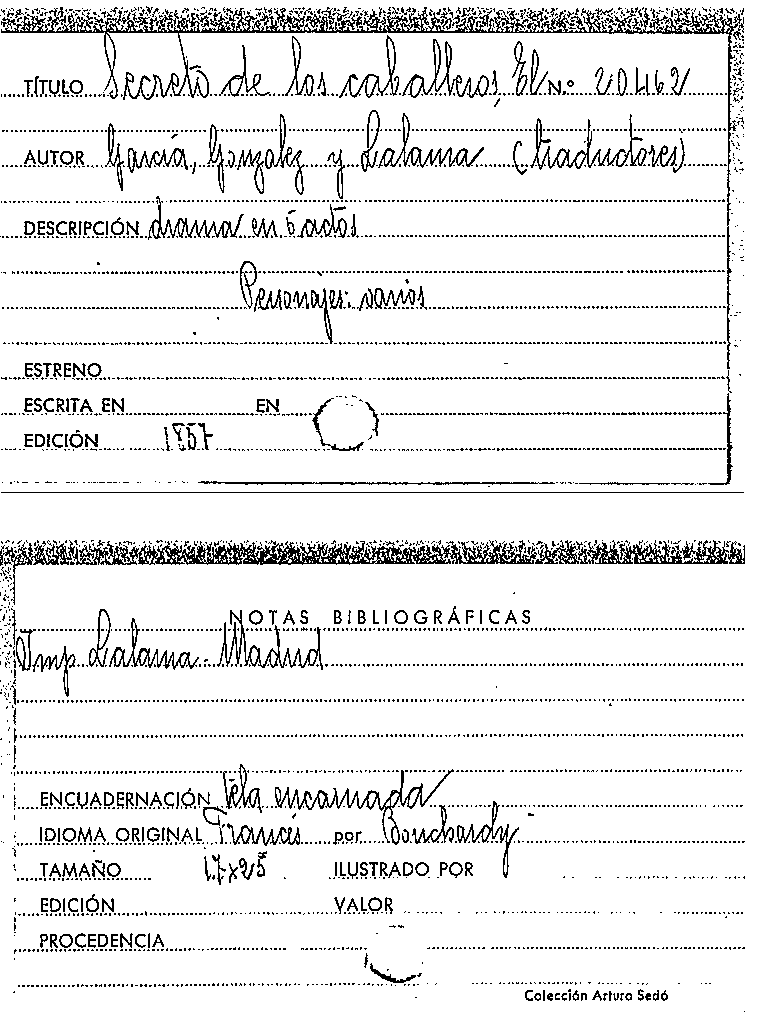 TÍTULO Secreto de los caballeros, El N.º 20462
AUTOR García, Gonzalez y Lalama (traductores)
DESCRIPCIÓN drama en 5 actos
Personajes: varios
ESTRENO
ESCRITA EN EN
EDICIÓN 1857
NOTAS BIBLIOGRÁFICAS
Imp Lalama. Madrid
ENCUADERNACIÓN tela encarnada
IDIOMA ORIGINAL Francés por Bouchardy
TAMAÑO 17x25 ILUSTRADO POR
EDICIÓN VALOR
PROCEDENCIA
Colección Arturo Sedó